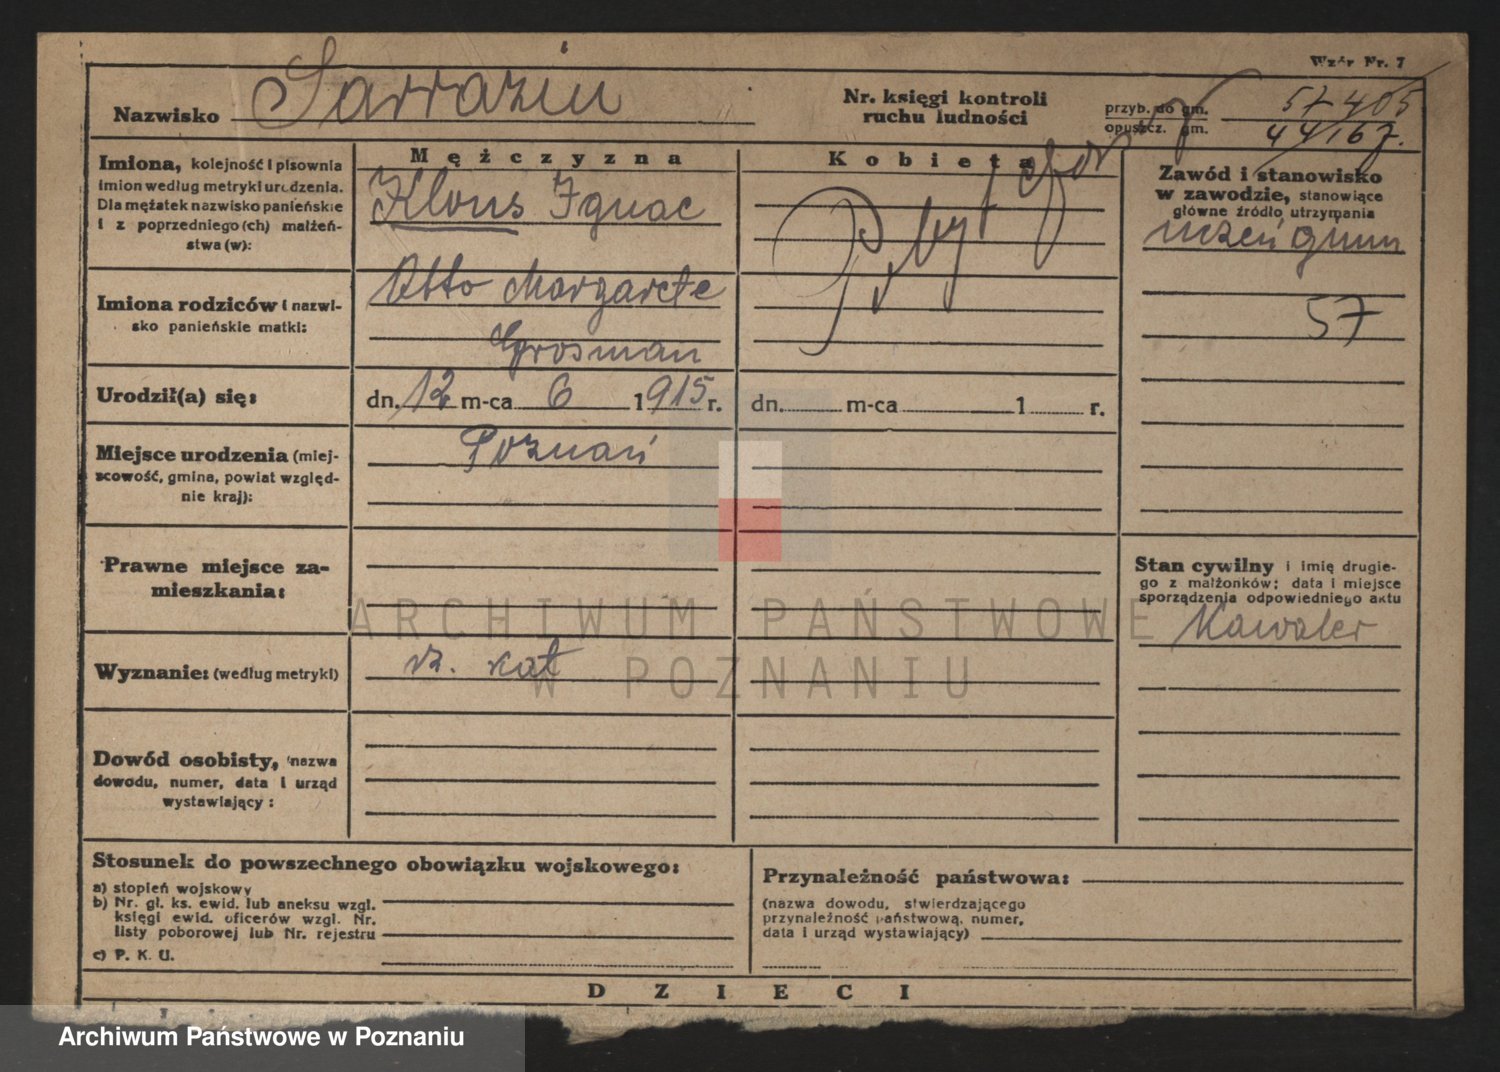 Wzór Nr. 7
Nazwisko Sarrazin
Nr. księgi kontroli
ruchu ludności
przyb. do gm. 57405
opuszcz. gm. 44167.
Imiona, kolejność i pisownia
imion według metryki urodzenia.
Dla mężatek nazwisko panieńskie
i z poprzedniego (ch) małżeń-
stwa (w):
Mężczyzna
Klaus Ignac
Kobieta
Zawód i stanowisko
w zawodzie, stanowiące
główne źródło utrzymania
uczeń gimn
57
Imiona rodziców i nazwi-
sko panieńskie matki:
Otto Margarete
Grosman
Urodził(a) się:
dn. 12 m-ca 6 1915 r.
dn. m-ca 1 r.
Miejsce urodzenia (miej-
scowość, gmina, powiat względ-
nie kraj):
Poznań
Prawne miejsce za-
mieszkania:
Stan cywilny i imię drugie-
go z małżonków; data i miejsce
sporządzenia odpowiedniego aktu
Kawaler
Wyznanie: (według metryki)
rz. kat
ARCHIWUM PAŃSTWOWE
W POZNANIU
Dowód osobisty, nazwa
dowodu, numer, data i urząd
wystawiający:
Stosunek do powszechnego obowiązku wojskowego:
a) stopień wojskowy
b) Nr. gł. ks. ewid. lub aneksu wzgl.
księgi ewid. oficerów wzgl. Nr.
listy poborowej lub Nr. rejestru
c) P. K. U.
Przynależność państwowa:
(nazwa dowodu, stwierdzającego
przynależność państwową, numer,
data i urząd wystawiający)
DZIECI
Archiwum Państwowe w Poznaniu